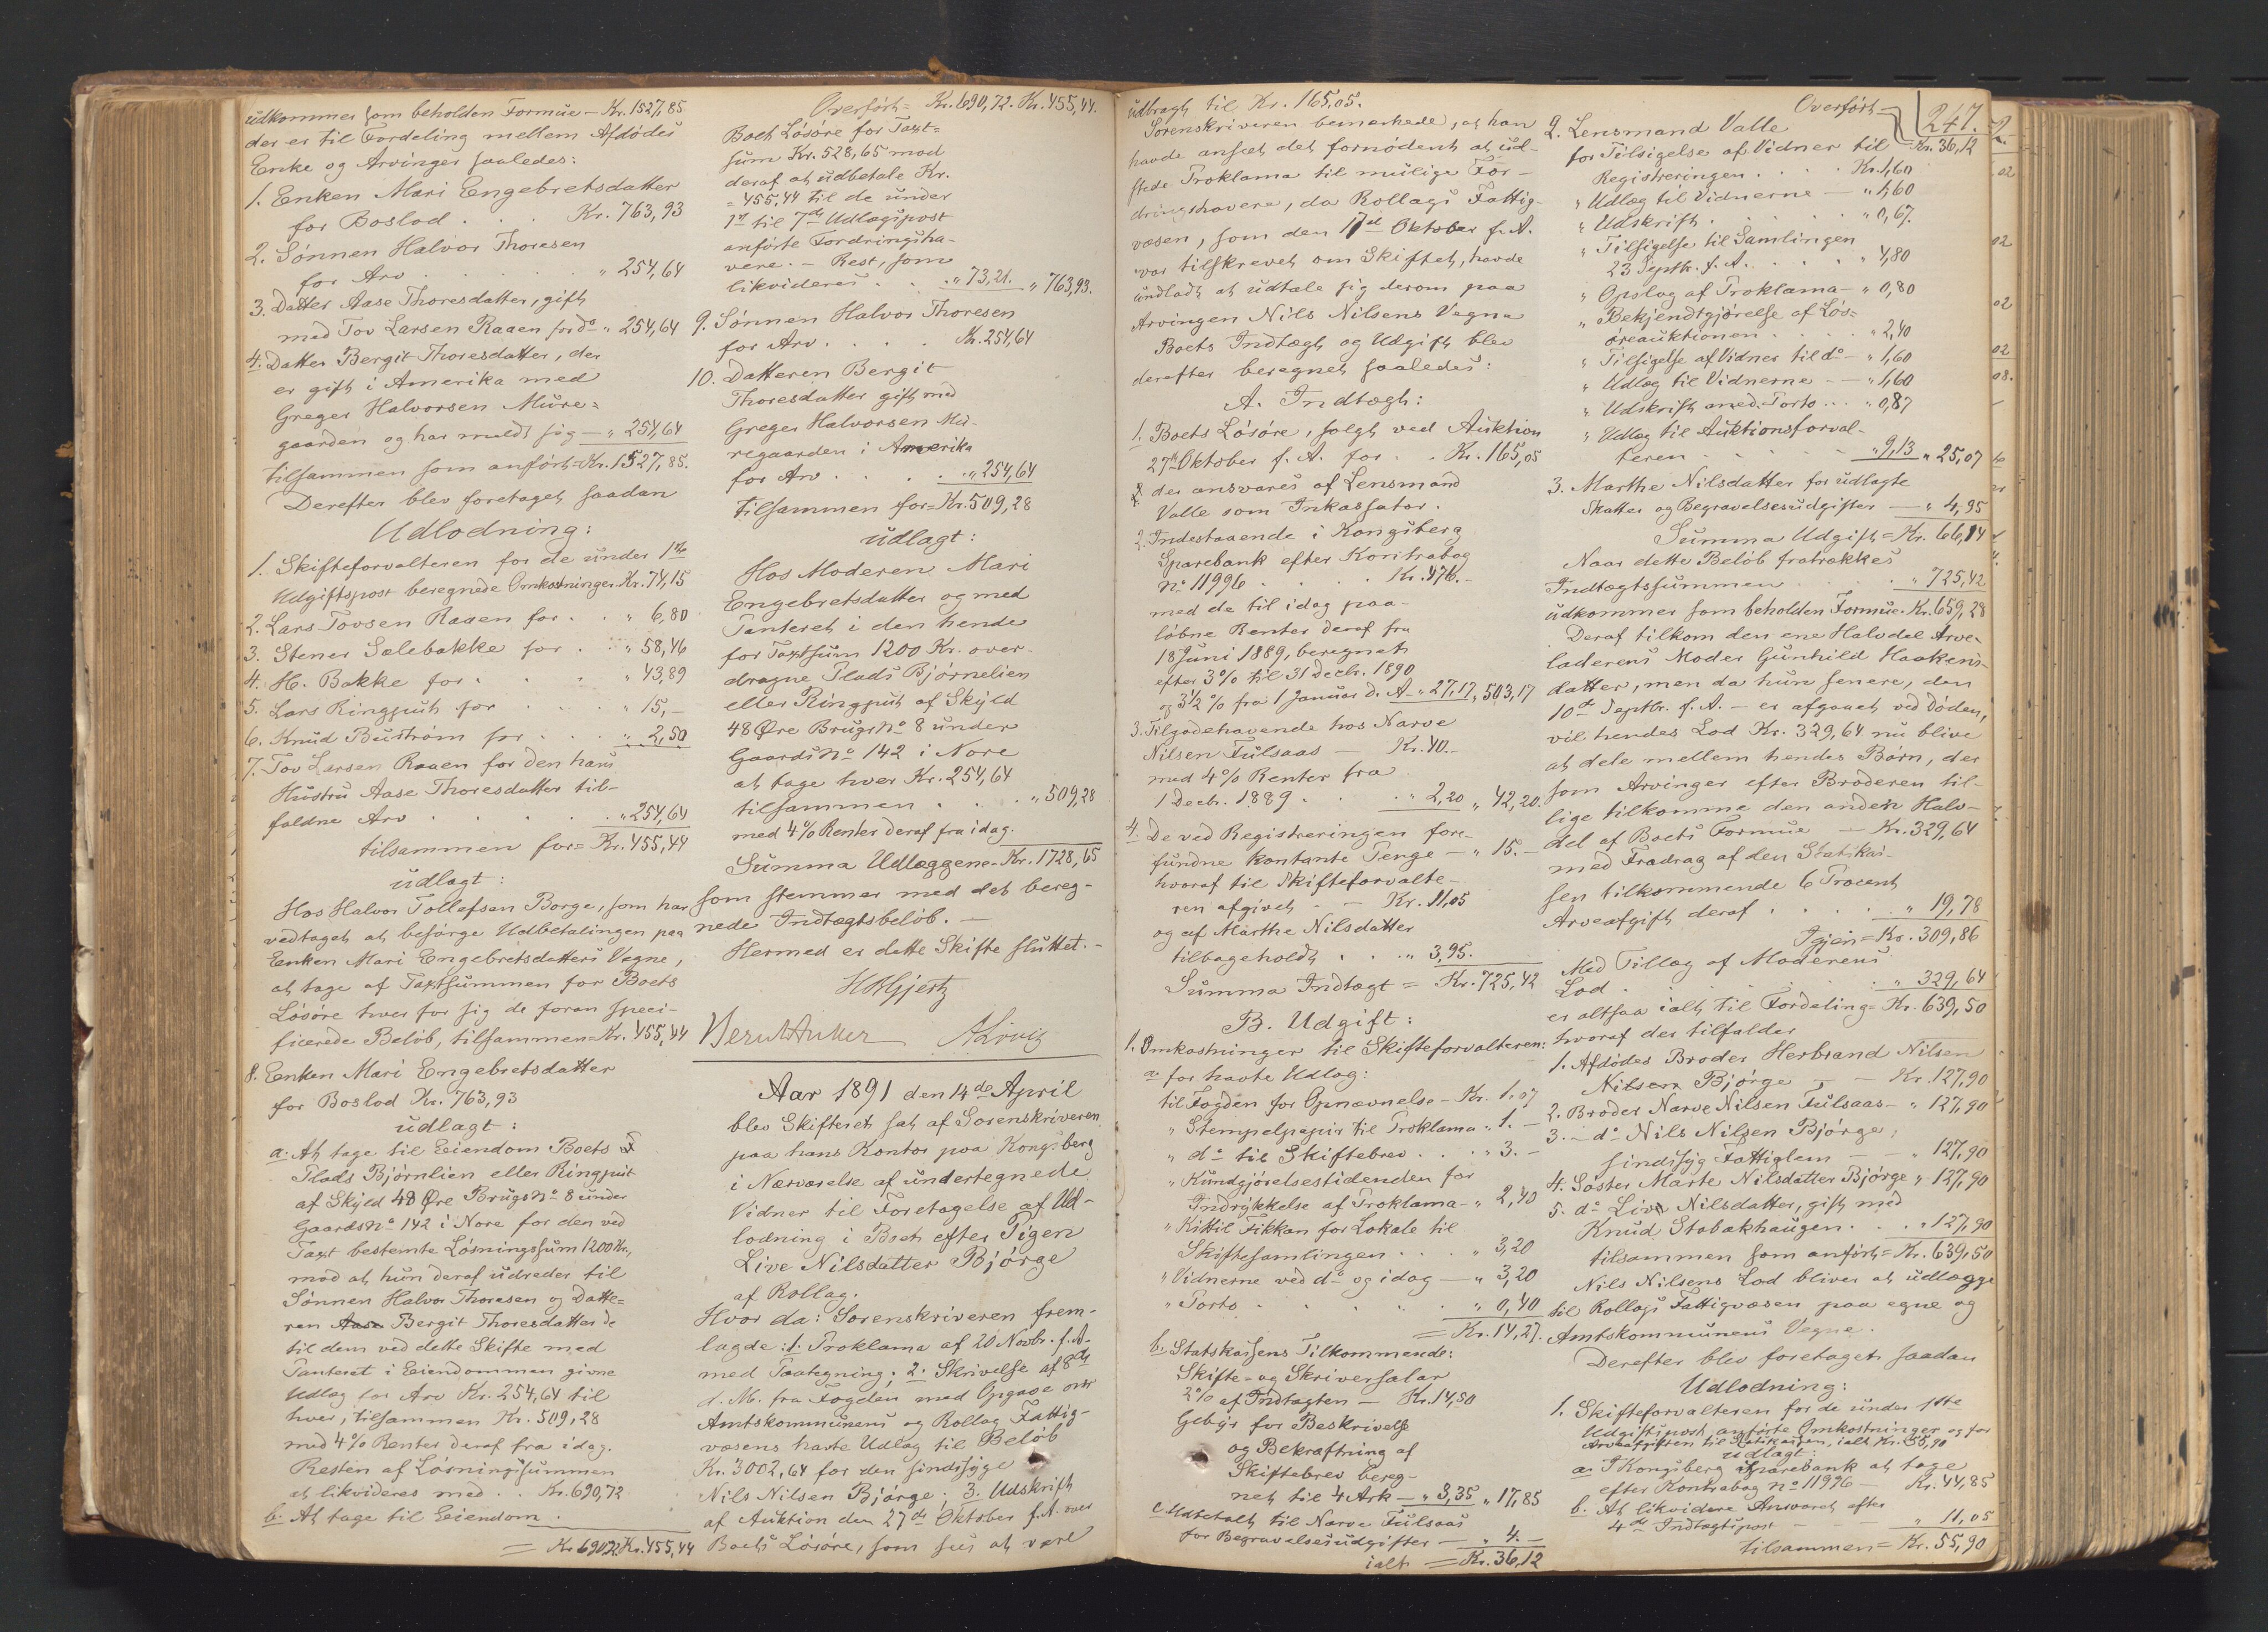 udkommer som beholden Formue — Kr. 1527,85
der er til Fordeling mellem Afdødes
Enke og Arvinger saaledes:
1. Enken Mari Engebretsdatter
for Boslod . . . Kr. 763,93
2. Sønnen Halvor Thoresen
for Arv . . . . . " 254,64
3. Datter Aase Thoresdatter, gift
med Tov Larsen Raaen for do " 254,64
4. Datter Bergit Thoresdatter, der
er gift i Amerika med
Greger Halvorsen Mure=
gaarden og har meldt sig — " 254,64
tilsammen som anført = Kr. 1527,85.
Derefter blev foretaget saadan
Udlodning:
1. Skifteforvalteren for de under 1ste
Udgiftspost beregnede Omkostninger Kr. 74,15
2. Lars Tovsen Raaen for . . " 6,80
3. Stener Sælebakke for . . " 58,46
4. H. Bakke for . . . . " 43,89
5. Lars Ringput for . . . " 15,–
6. Knud Buström for . . . " 2,50
7. Tov Larsen Raaen for den hans
Hustru Aase Thoresdatter til-
faldne Arv . . . . . " 254,64
tilsammen for = Kr. 455,44
udlagt:
Hos Halvor Tollefsen Borge, som har
vedtaget at besørge Udbetalingen paa
Enken Mari Engebretsdatters Vegne,
at tage af Taxtsummen for Boets
Løsøre hver for sig de foran speci-
ficerede Beløb, tilsammen = Kr. 455,44
8. Enken Mari Engebretsdatter
for Boslod Kr. 763,93
udlagt:
a. At tage til Eiendom Boets
Plads Bjørnlien eller Ringput
af Skyld 48 Øre Brugs No 8 under
Gaards No 142 i Nore for den ved
Taxt bestemte Løsningssum 1200 Kr.,
mod at hun deraf udreder til
Sønnen Halvor Thoresen og Datte=
ren Aase Bergit Thoresdatter de
til dem ved dette Skifte med
Panteret i Eiendommen givne
Udlæg for Arv Kr. 254,64 til
hver, tilsammen Kr. 509,28
med 4 % Renter deraf fra idag.
Resten af Løsningssummen
at likvideres med . . Kr. 690,72
b. At tage til Eiendom .
= Kr. 690,72 Kr. 455,44
Overført = Kr. 690,72. Kr. 455,44.
Boets Løsøre for Taxt=
sum Kr. 528,65 mod
deraf at udbetale Kr.
= 455,44 til de under
1ste til 7de Udlægspost
anførte Fordringsha-
vere. – Rest, som
likvideres . . . " 73,21. " 763,93.
9. Sønnen Halvor Thoresen
for Arv . . . . Kr. 254,64
10. Datteren Bergit
Thoresdatter gift med
Greger Halvorsen Mu-
regaarden i Amerika
for Arv . . . . " 254,64
tilsammen for = Kr. 509,28
udlagt:
Hos Moderen Mari
Engebretsdatter og med
Panteret i den hende
for Taxtsum 1200 Kr. over-
dragne Plads Bjørnelien
eller Ringput af Skyld
48 Øre Brugs No 8 under
Gaards No 142 i Nore
at tage hver Kr. 254,64
tilsammen . . . . " 509,28
med 4 % Renter deraf fra idag.
Summa Udlæggene – Kr. 1728,65
som stemmer med det bereg-
nede Indtægtsbeløb. —
Hermed er dette Skifte sluttet. –
Aar 1891 den 14de April
blev Skifteret sat af Sorenskriveren
paa hans Kontor paa Kongsberg
i Nærværelse af undertegnede
Vidner til Foretagelse af Ud-
lodning i Boet efter Pigen
Live Nilsdatter Bjørge
af Rollag.
Hvor da: Sorenskriveren frem-
lagde: 1. Proklama af 20 Novbr. f. A.
med Paategning; 2. Skrivelse af 8de
d. M. fra Fogden med Opgave over
Amtskommunens og Rollag Fattig-
væsens havte Udlæg til Beløb
Kr. 3002,64 for den sindssyge
Nils Nilsen Bjørge; 3. Udskrift
af Auktion den 27de Oktober f. A. over
Boets Løsøre, som sees at være
udbragt til Kr. 165,05.
Sorenskriveren bemærkede, at han
havde anseet det fornødent at ud-
stede Proklama til mulige For-
dringshavere, da Rollags Fattig-
væsen, som den 17de Oktober f. A.
var tilskrevet om Skiftet, havde
undladt at udtale sig derom paa
Arvingen Nils Nilsens Vegne
Boets Indtægt og Udgift blev
derefter beregnet saaledes:
A. Indtægt:
1. Boets Løsøre, solgt ved Auktion
27de Oktober f. A. for . . Kr. 165,05
der ansvares af Lensmand
Valle som Inkassator.
2. Indestaaende i Kongsberg
Sparebank efter Kontrabog
No 11996 . . . . Kr. 476.–
med de til idag paa-
løbne Renter deraf fra
18 Juni 1889, beregnet
efter 3 % til 31 Decbr. 1890
og 3½ % fra 1 Januar d. A – " 27,17 " 503,17
3. Tilgodehavende hos Narve
Nilsen Fulsaas — Kr. 40.–
med 4 % Renter fra
1 Decbr. 1889 . . . . " 2,20 " 42,20.
4. De ved Registreringen fore-
fundne kontante Penge — " 15.–
hvoraf til Skifteforvalte-
ren afgivet – – Kr. 11,05
og af Marthe Nilsdatter
tilbageholdt . . . " 3,95.
Summa Indtægt = Kr. 725,42
B. Udgift:
1. Omkostninger til Skifteforvalteren:
a. for havte Udlæg:
til Fogden for Opnævnelse – Kr. 1.07
" Stempelpapir til Proklama " 1. –
" do til Skiftebrev . . . " 3. –
" Kundgjørelsestidenden for
Indrykkelse af Proklama – " 2,40
" Kittil Fikkan for Lokale til
Skiftesamlingen . . . " 3,20
" Vidnerne ved do og idag — " 3,20
" Porto . . . . . . " 0,40
= Kr. 14,27.
b. Statskassens Tilkommende:
Skifte- og Skriversalær
2 % af Indtægten — Kr. 14,50
Gebyr for Beskrivelse
og Bekræftning af
Skiftebrev bereg-
net til 4 Ark — " 3,35 " 17,85
c. Udbetalt til Narve Fulsaas
for Begravelsesudgifter — " 4. –
ialt = Kr. 36,12
247.
Overført
Kr. 36,12
2. Lensmand Valle
for Tilsigelse af Vidner til
Registreringen . . . . Kr. 1,60
" Udlæg til Vidnerne — " 1,60
" Udskrift . . . . . " 0,67.
" Tilsigelse til Samlingen
23 Septbr. f. A. . . . . " 4,80
" Opslag af Proklama — " 0,80
" Bekjendtgjørelse af Løs=
øreauktionen . . . . " 2,40
" Tilsigelse af Vidner til do — " 1,60
" Udlæg til Vidnerne — — " 1,60
" Udskrift med Porto . . . " 0,87
" Udlæg til Auktionsforval-
teren . . . . . " 9,13 " 25,07
3. Marthe Nilsdatter for udlagte
Skatter og Begravelsesudgifter — " 4,95
Summa Udgift = Kr. 66,14
Naar dette Beløb fratrækkes
Indtægtssummen . . . . " 725,42
udkommer som beholden Formue. Kr. 659,28
Deraf tilkom den ene Halvdel Arve-
laderens Moder Gunhild Haakens-
datter, men da hun senere, den
10de Septbr. f. A. – er afgaaet ved Døden,
vil hendes Lod Kr. 329,64 nu blive
at dele mellem hendes Børn, der
som Arvinger efter Broderen til-
lige tilkomme den anden Halv-
del af Boets Formue — Kr. 329,64
med Fradrag af den Statskas-
sen tilkommende 6 Procent
Arveafgift deraf . . . . . " 19,78
Igjen = Kr. 309,86
Med Tillæg af Moderens
Lod . . . . . . " 329,64
er altsaa ialt til Fordeling = Kr. 639,50
hvoraf der tilfalder
1. Afdødes Broder Herbrand Nilsen
Nilsen Bjørge — — Kr. 127,90
2. Broder Narve Nilsen Fulsaas — " 127,90
3. – do Nils Nilsen Bjørge,
sindssyg Fattiglem — — " 127,90
4. Søster Marte Nilsdatter Bjørge " 127,90
5. do Live Nilsdatter, gift med
Knud Stabakhaugen . . . " 127,90
tilsammen som anført = Kr. 639,50
Nils Nilsens Lod bliver at udlægge
til Rollags Fattigvæsen paa egne og
Amtskommunens Vegne.
Derefter blev foretaget saadan
Udlodning:
1. Skifteforvalteren for de under 1ste
Udgiftspost anførte Omkostninger og for
Arveafgiften til Statskassen, ialt Kr. 55,90
udlagt:
a. I Kongsberg Sparebank at tage
efter Kontrabog No 11996 — Kr. 44,85
b. At likvidere Ansvaret efter
4de Indtægtspost — — " 11,05
tilsammen = Kr. 55,90